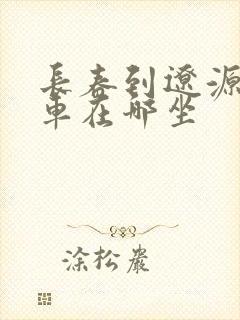 長春到遼源
車在哪坐
涂松巖